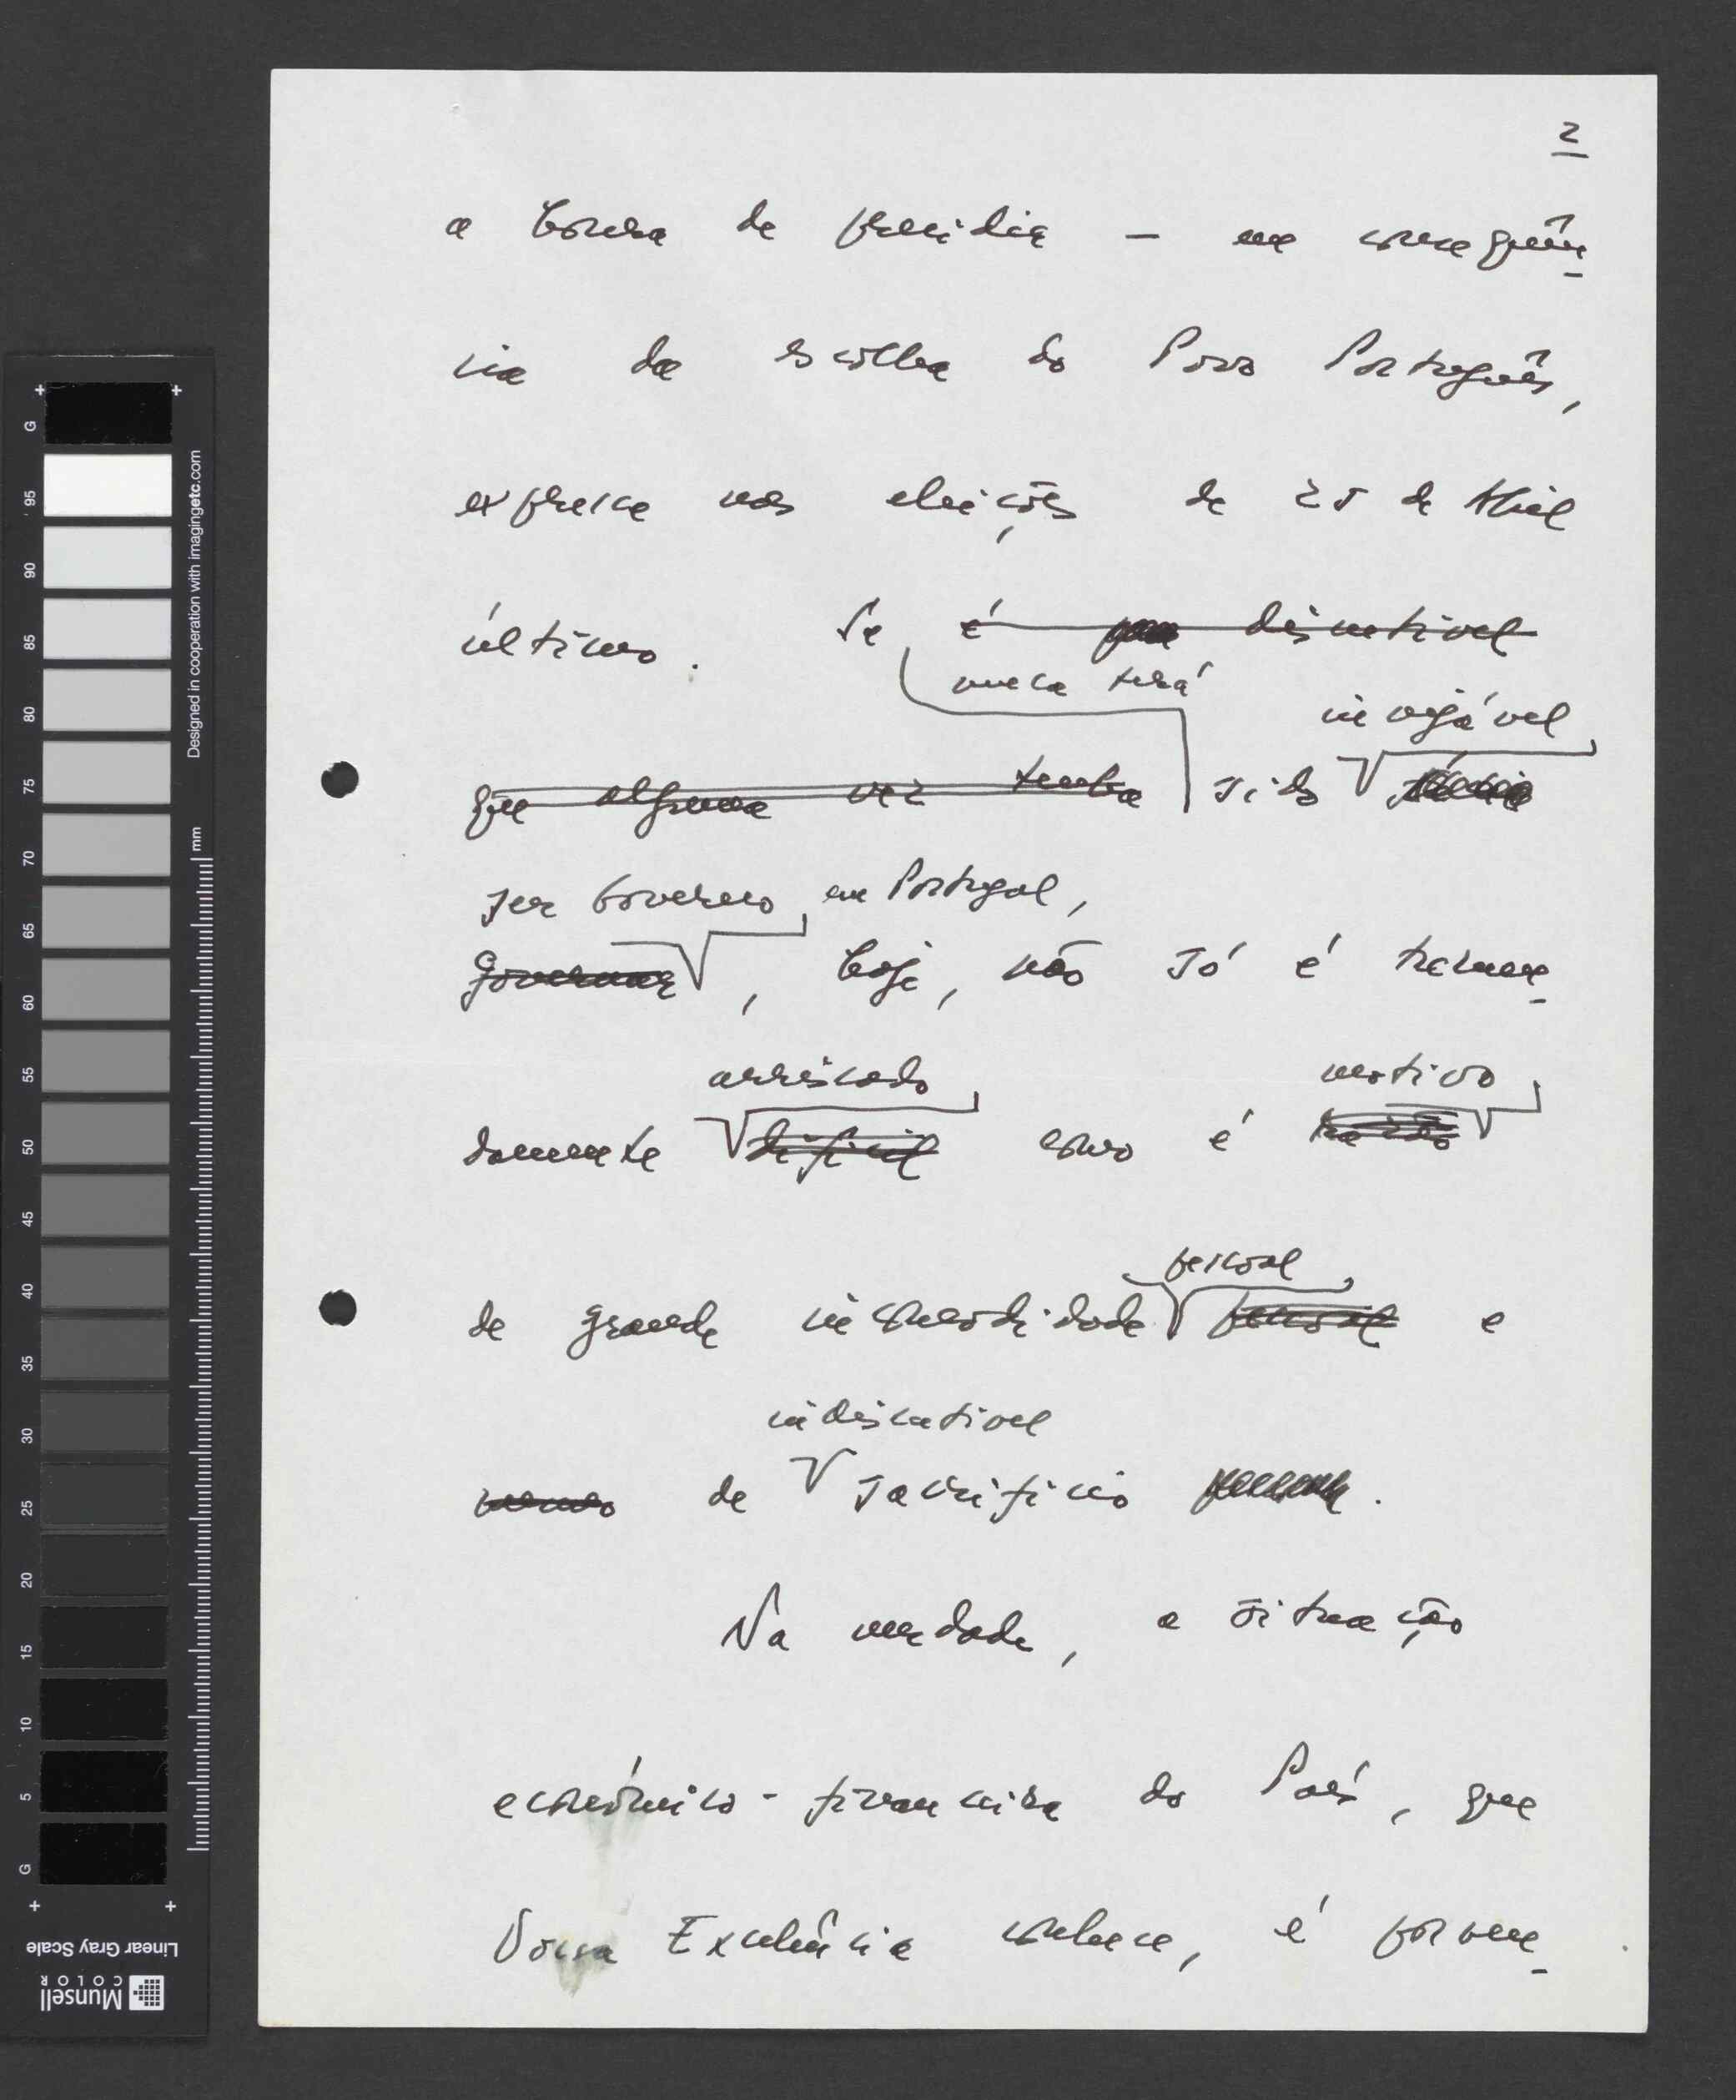 2
a honra de presidir — na consequên-
cia da escolha do Povo Português,
expressa nas eleições de 25 de Abril
último. Se é discutível
nunca terá
invejável
que alguma vez tenha sido
ser Governo em Portugal,
governar, hoje, não só é tremen-
arriscado motivo
damente difícil como é
pessoal
de grande incomodidade pessoal e
indiscutível
mesmo de sacrifício.
Na verdade, a situação
económico-financeira do País, que
Vossa Excelência conhece, é porven-
G
95
90
85
80
75
70
65
60
55
50
45
40
35
30
25
20
15
10
5
G
mm
Designed in cooperation with imagingetc.com
Linear Gray Scale
Munsell
COLOR